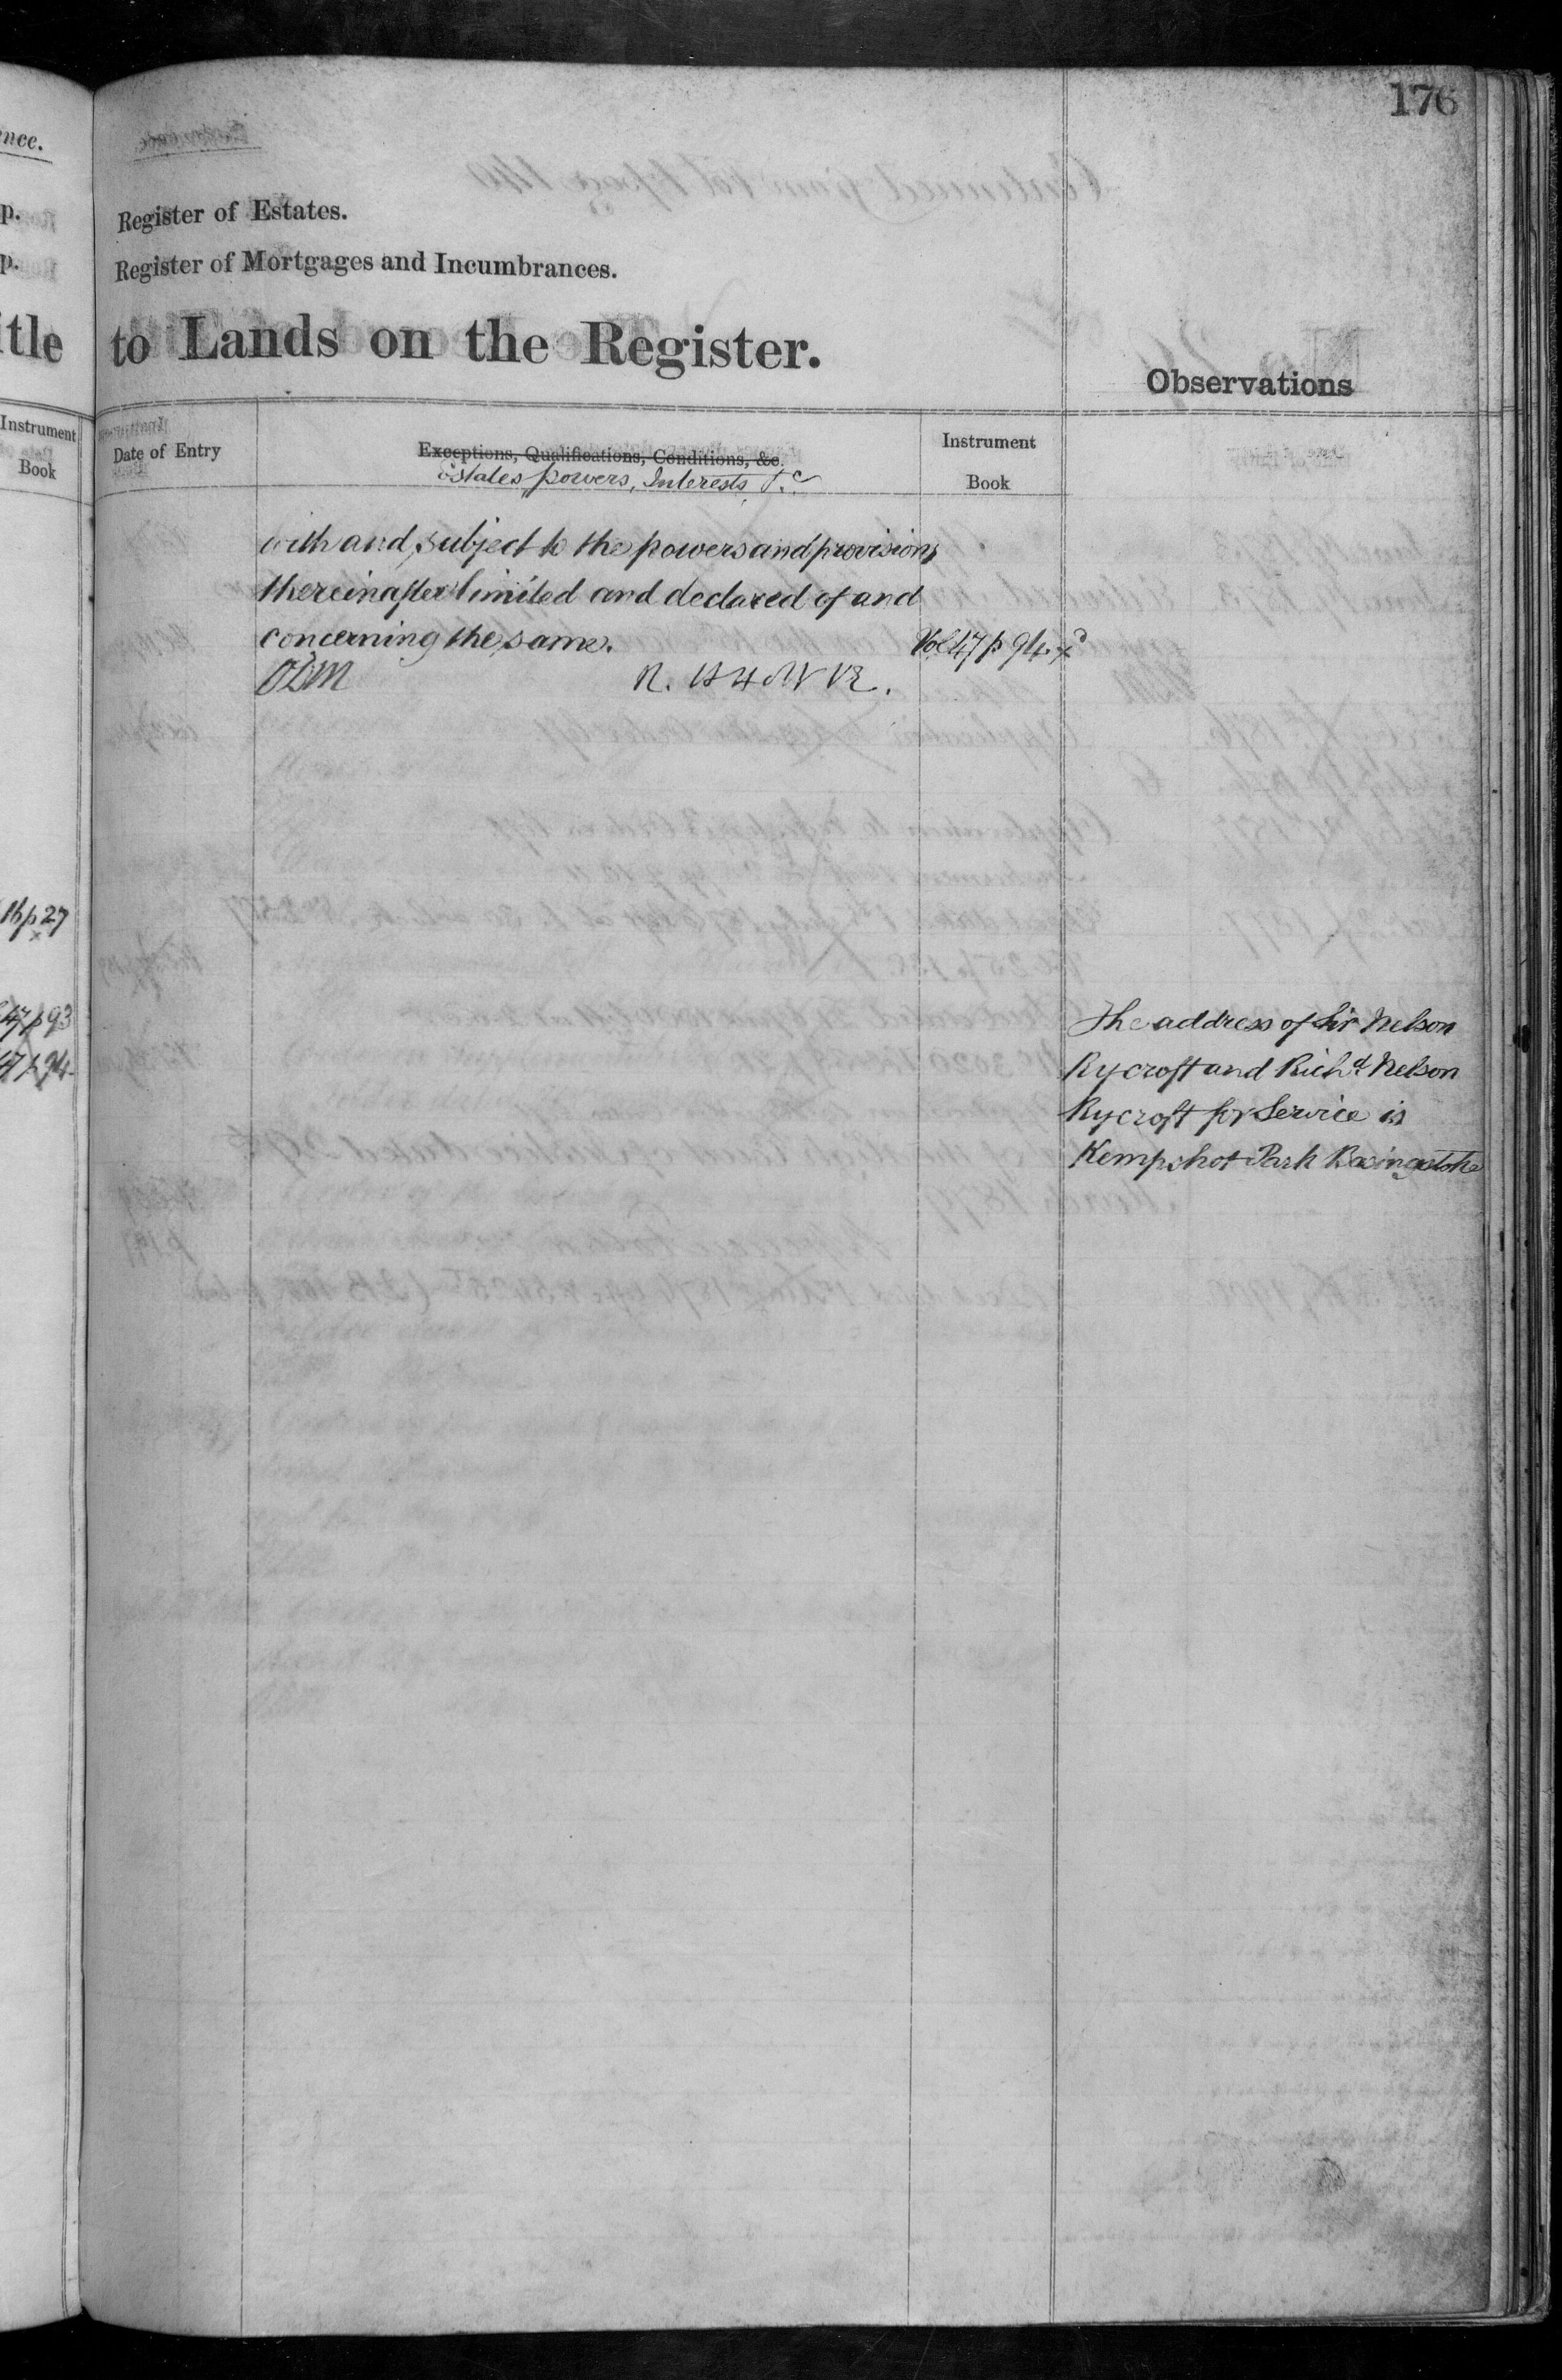 176
Register of Estates.
Register of Mortgages and Incumbrances.
to Lands on the Register.
Observations
Date of Entry
Exceptions, Qualifications, Conditions, &c.
Estates, powers, Interests &c
Instrument
Book
with and subject to the powers and provisions
thereinafter limited and declared of and
concerning the same.
Vol 47 p 94.
The address of Sir Nelson
Rycroft and Richd Nelson
Rycroft for Service is
Kempshot Park Basingstoke
nce.
p.
p.
itle
Instrument
Book
16 p 27
47 p 93
47 p 94